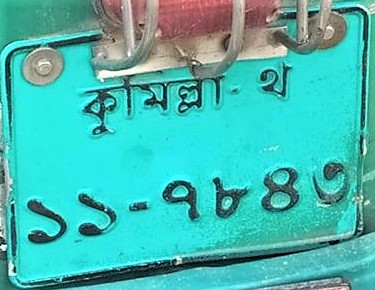 কুমিল্লা-থ
১১-৭৮৪৩